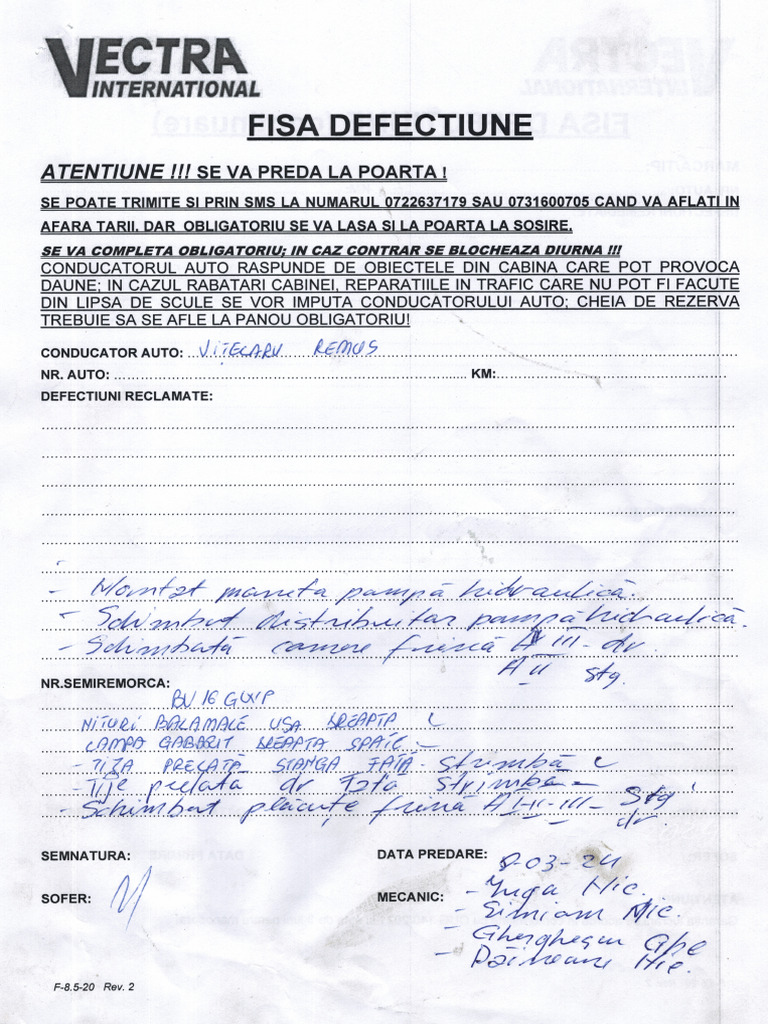 VECTRA
INTERNATIONAL
FISA DEFECTIUNE
ATENTIUNE !!! SE VA PREDA LA POARTA !
SE POATE TRIMITE SI PRIN SMS LA NUMARUL 0722637179 SAU 0731600705 CAND VA AFLATI IN
AFARA TARII, DAR OBLIGATORIU SE VA LASA SI LA POARTA LA SOSIRE,
SE VA COMPLETA OBLIGATORIU; IN CAZ CONTRAR SE BLOCHEAZA DIURNA !!!
CONDUCATORUL AUTO RASPUNDE DE OBIECTELE DIN CABINA CARE POT PROVOCA
DAUNE; IN CAZUL RABATARI CABINEI, REPARATIILE IN TRAFIC CARE NU POT FI FACUTE
DIN LIPSA DE SCULE SE VOR IMPUTA CONDUCATORULUI AUTO; CHEIA DE REZERVA
TREBUIE SA SE AFLE LA PANOU OBLIGATORIU!
CONDUCATOR AUTO: VITELARU REMUS
NR. AUTO: KM:
DEFECTIUNI RECLAMATE:
- Montat maneta pompă hidraulică.
- Schimbat distribuitor pompă hidraulică.
- Schimbată camere frînă A III - dr
A II stg.
NR.SEMIREMORCA:
BV 16 GWP
NITURI BALAMALE USA DREAPTA
LAMPA GABARIT DREAPTA SPATE
- TIJA PRELATĂ STANGA FATĂ - strîmbă
- Tije prelată dr față strîmbă
- Schimbat plăcuțe frînă A I-II-III - stg
dr
SEMNATURA: DATA PREDARE: 03-24
SOFER: MECANIC: - Juga Nic.
- Simion Nic
- Ghe
- Nic.
F-8.5-20 Rev. 2